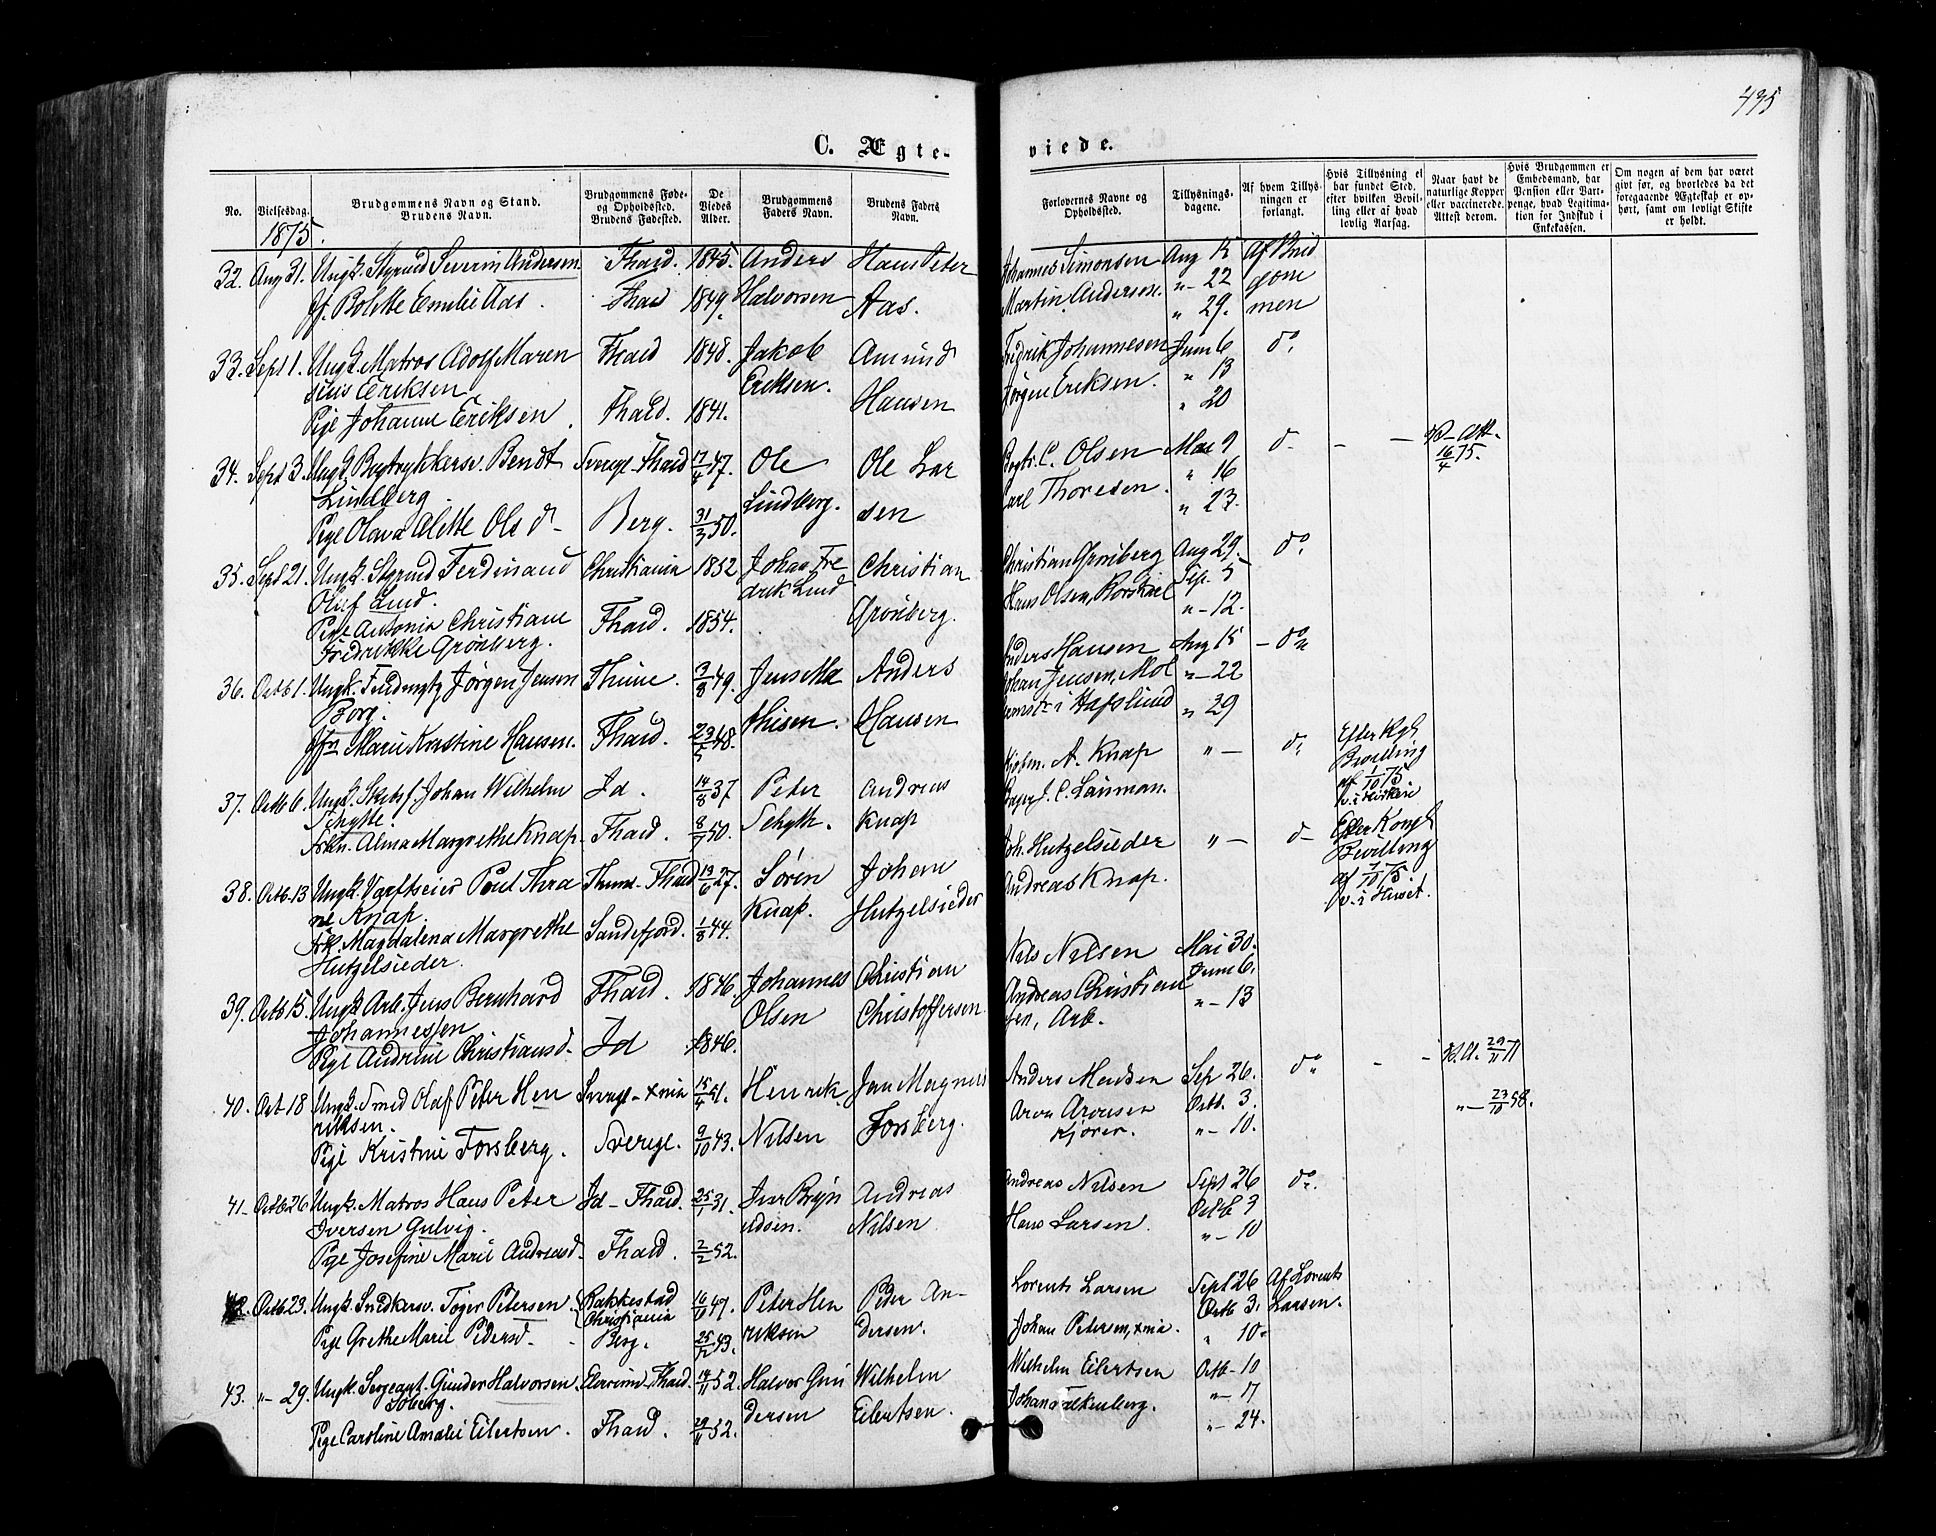 495
C. Ægte-
viede.
No.
Vielsesdag.
Brudgommens Navn og Stand.
Brudens Navn.
Brudgommens Føde-
og Opholdssted.
Brudens Fødested.
De
Viedes
Alder.
Brudgommens
Faders Navn.
Brudens Faders
Navn.
Forlovernes Navne og
Opholdssted.
Tillysnings-
dagene.
Af hvem Tillys-
ningen er
forlangt.
Hvis Tillysning ei
har fundet Sted,
efter hvilken Bevil-
ling eller af hvad
lovlig Aarsag.
Naar havt de
naturlige Kopper
eller vaccinerede.
Attest derom.
Hvis Brudgommen er
Embedsmand, har
Pension eller Vart-
penge, hvad Legitima-
tion for Indskud i
Enkekassen.
Om nogen af dem har været
gift før, og hvorledes da det
foregaaende Ægteskab er op-
hørt, samt om lovligt Skifte
er holdt.
1875.
32. Aug 31. Ungk. Styrmd Severin Andersen Fhald. 1845. Anders Hans Peter Johannes Simonsen Aug 15 Af Brud
Jf. Bolette Emilie Aas. Fhald 1849. Halvorsen Aas. Martin Andersen. "- 22 gom
" 29. men
33. Sept 1. Ungk. Matros Adolf Maren Fhald 1848. Jakob Amund Fredrik Johannesen Juni 6 do.
sius Eriksen Eriksen. Jørgen Eriksen. " 13
Pige Johanne Eriksen. Fhald. 1841. Hansen " 20
34. Sept 3. Ungk. Bogtrykkersv. Bendt Sverige-Fhald 17/4 47. Ole Ole Lar Bogtr. C. Olsen Mai 9 do - - Vd- Att.
Lindberg Lindberg. sen Carl Thoresen. " 16 16/4 75.
Pige Olava Alette Olsd- Berg. 31/3 50. " 23.
35. Sept 21. Ungk. Styrmd Ferdinand Christiania 1852 Johan Fre Christian Christian Grønberg Aug 29. do.
Oluf Lund. drik Lund Hans Olsen, Sep. 5
Pige Antonia Christiane Fhald. 1854. Grønberg. "- 12.
Fredrikke Grønberg.
36. Octb 1. Ungk. Jørgen Jensen Thune. 3/8 49. Jens Ma Anders Anders Hansen Aug 15 - do
Borg. thisen. Hansen Johan Jensen, Møl "- 22
Jfr Marie Kristine Hansen. Fhald. 23/5 48. i Hafslund " 29
37. Octb 6. Ungk. Skibsf. Johan Wilhelm Id. 14/8 37 Peter Andreas Kjøbm. A. Knap "- do Efter Kgl.
Schytte. Schytt. Knap J. C. Lauman. Bevilling
Frkn. Alina Margrethe Knap- Fhald. 8/7 50. af 1/10 75
v. i Kirken
38. Octb. 13 Ungk. Værftseier Poul Thra Thund- Fhald 13/6 27. Søren Johan Joh. Hutzelsieder "- do Efter Kongl.
ne Knap. Knap. Hutzelsieder Andreas Knap. Bevilling
Frk. Magdalena Margrethe Sandefjord. 1/8 44. af 7/10 75.
Hutzelsieder. v. i Huset.
39. Octb 15. Ungk. Arb. Jens Bernhard Fhald. 1846. Johannes Christian Nils Nilsen Mai 30.
Johannessen Olsen Christoffersen Andreas Christian Juni 6.
Pige Andrine Christiansd- Id 1846. sen, Arb. "- 13
40. Oct 18 Ungk. Smed Olaf Peter Hen Sverige- Xnia 15/4 51. Henrik Jan Magnus Anders Madsen Sep 26. do - - Vd. A. 29/11 71
riksen. Nilsen Forsberg. Aron Aronsen Octb. 3. "- 23/10 58.
Pige Kristine Forsberg. Sverige. 9/10 43. Kjører. "- 10.
41. Octb 26 Ungk. Matros Hans Peter Id- Fhald. 25/1 31. Iver Bryn Andreas Andreas Nilsen Sept 26 do.
Iversen Gulvig. ildsen. Nilsen Hans Larsen Octb 3
Pige Josefine Marie Andreasd- Fhald. 2/2 52. "- 10
42. Octb. 23. Ungk. Snedkersv. Tøger Petersen Rakkestad 16/10 47. Peter Hen Peder An- Lorents Larsen Sept 26 Af Lorents
Christiania riksen dersen. Octb 3. Larsen.
Pige Grethe Marie Pedersd- Berg. 25/12 43. Johan Petersen, Xnia. " 10.
43. "- 29. Ungk. Sergeant Gunder Halvorsen Elverum- Fhald. 14/11 52. Halvor Gun Wilhelm Wilhelm Eilertsen Octb- 10
Soberg. dersen Eilertsen. Johan Falkenberg. "- 17
Pige Caroline Amalie Eilertsen. Fhald. 29/11 52. "- 24.